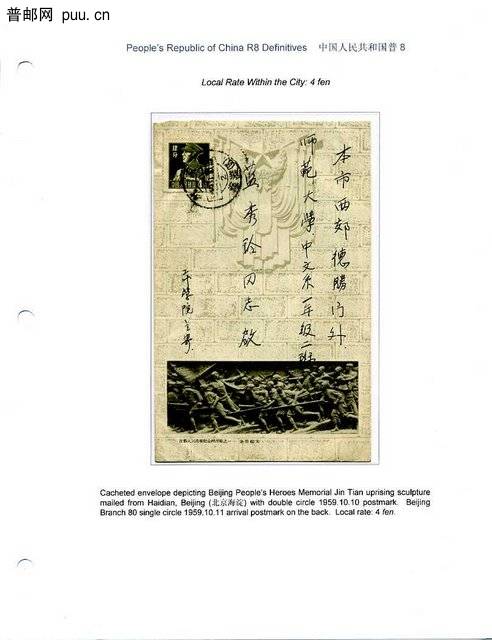 普邮网 puu.cn
People's Republic of China R8 Definitives 中国人民共和国普8
Local Rate Within the City: 4 fen
本市西郊德勝门外
师范大學中文系一年级二班
蓝秀玲同志啟
Cacheted envelope depicting Beijing People's Heroes Memorial Jin Tian uprising sculpture
mailed from Haidian, Beijing (北京海淀) with double circle 1959.10.10 postmark. Beijing
Branch 80 single circle 1959.10.11 arrival postmark on the back. Local rate: 4 fen.